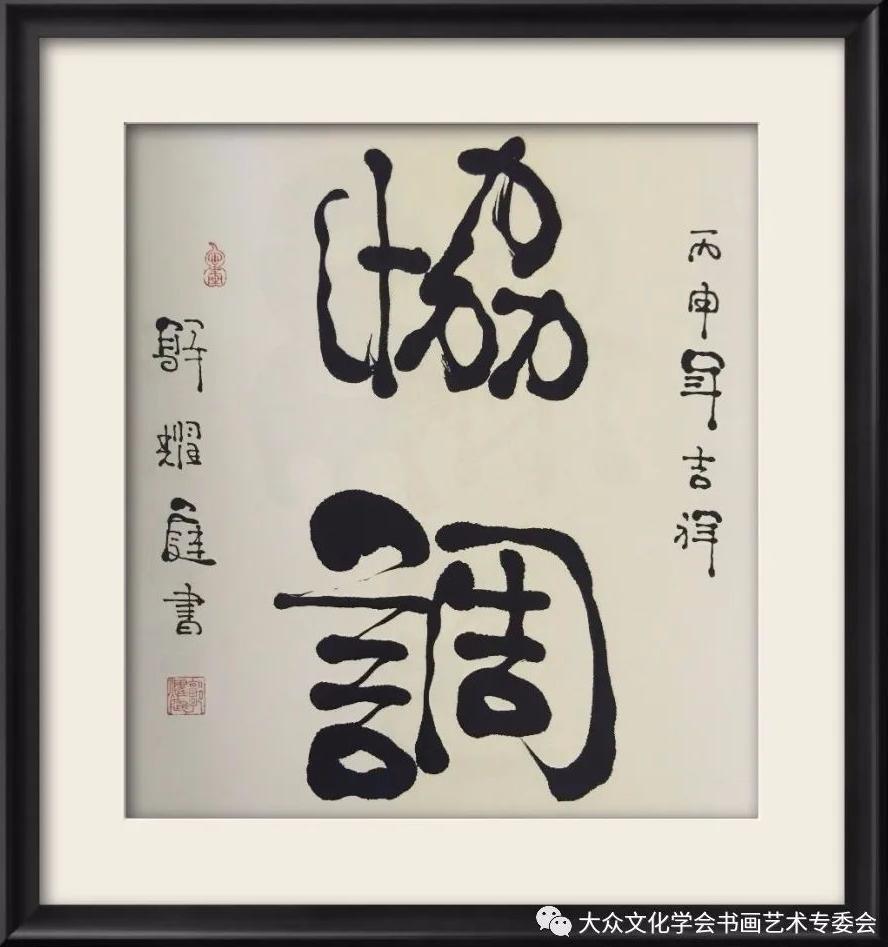 丙申年吉祥
協調
郭耀庭書
大众文化学会书画艺术专委会